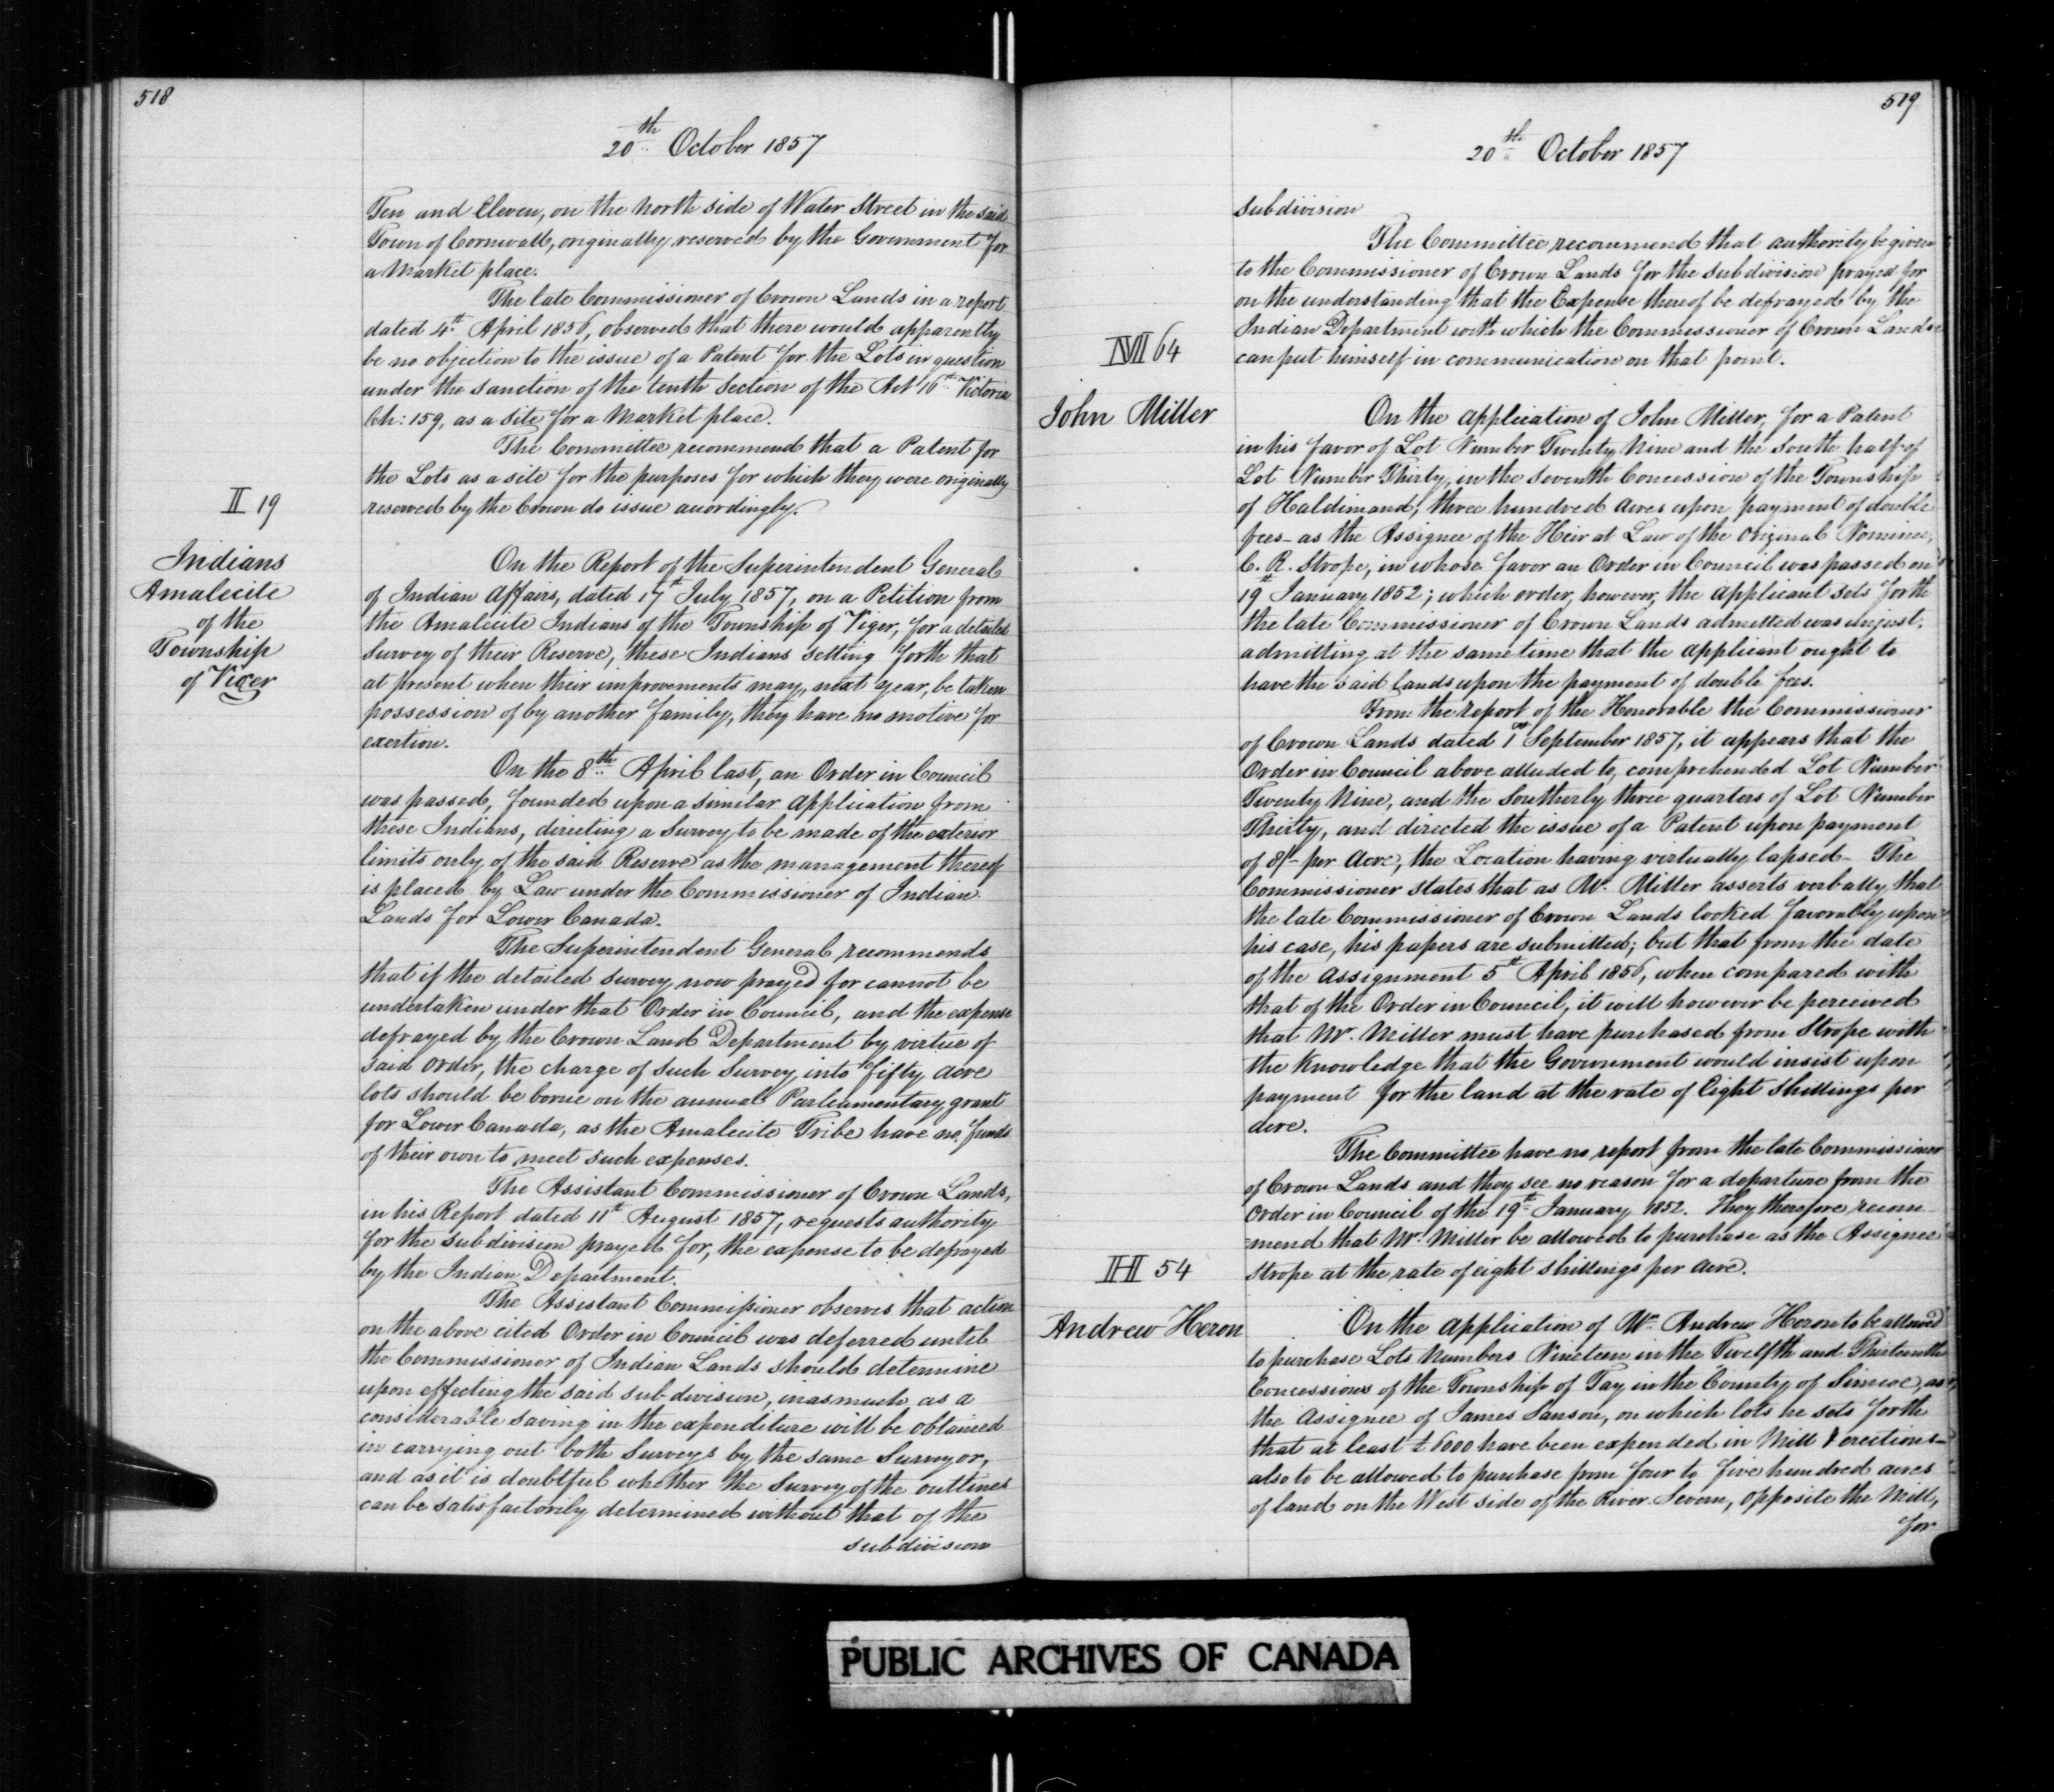 518
20th October 1857
Ten and Eleven, on the North side of Water Street in the said
Town of Cornwall, originally reserved by the Government for
a Market place.
The late Commissioner of Crown Lands in a report
dated 4th April 1856, observed that there would apparently
be no objection to the issue of a Patent for the Lots in question
under the sanction of the tenth Section of the Act 16th Victoria
Ch: 159, as a Site for a Market place.
The Committee recommend that a Patent for
the Lots as a site for the purposes for which they were originally
reserved by the Crown do issue accordingly.
II 19
Indians
Amalecite
of the
Township
of Viger
On the Report of the Superintendent General
of Indian Affairs, dated 17th July 1857, on a Petition from
the Amalicite Indians of the Township of Viger, for a detailed
Survey of their Reserve, these Indians setting forth that
at present when their improvements may, next year, be taken
possession of by another family, they have no motive for
exertion.
On the 8th April last, an Order in Council
was passed, founded upon a similar application from
these Indians, directing a Survey to be made of the exterior
limits only of the said Reserve as the management thereof
is placed by Law under the Commissioner of Indian
Lands for Lower Canada.
The Superintendent General recommends
that if the detailed survey now prayed for cannot be
undertaken under that Order in Council, and the expense
defrayed by the Crown Land Department by virtue of
said order, the charge of such Survey into fifty acre
lots should be borne on the annual Parliamentary grant
for Lower Canada, as the Amalecite Tribe have no funds
of their own to meet such expenses.
The Assistant Commissioner of Crown Lands,
in his Report dated 11th August 1857, requests authority
for the subdivision prayed for, the expense to be defrayed
by the Indian Department.
The Assistant Commissioner observes that action
on the above cited Order in Council was deferred until
the Commissioner of Indian Lands should determine
upon effecting the said subdivision, inasmuch as a
considerable saving in the expenditure will be obtained
in carrying out both Surveys by the same Surveyor,
and as it is doubtful whether the Survey of the outlines
can be satisfactorily determined without that of the
subdivision
519
20th October 1857
subdivision
The Committee recommend that authority be given
to the Commissioner of Crown Lands for the subdivision prayed for
on the understanding that the Expense thereof be defrayed by the
Indian Department with which the Commissioner of Crown Lands
can put himself in communication on that point.
M 64
John Miller
On the application of John Miller, for a Patent
in his favor of Lot Number Twenty Nine and the South half of
Lot Number Thirty, in the Seventh Concession of the Township
of Haldimand, three hundred acres upon payment of double
fees as the Assignee of the Heir at Law of the original Nominee,
C. R. Strope, in whose favor an Order in Council was passed on
19th January 1852; which order, however, the applicant sets forth
the late Commissioner of Crown Lands admitted was unjust,
admitting at the same time that the applicant ought to
have the said lands upon the payment of double fees.
From the report of the Honorable the Commissioner
of Crown Lands dated 1st September 1857, it appears that the
Order in Council above alluded to, comprehended Lot Number
Twenty Nine, and the Southerly three quarters of Lot Number
Thirty, and directed the issue of a Patent upon payment
of 8/- per Acre, the Location having virtually lapsed - The
Commissioner states that as Mr. Miller asserts verbally that
the late Commissioner of Crown Lands looked favorably upon
his case, his papers are submitted; but that from the date
of the assignment 5th April 1856, when compared with
that of the Order in Council, it will however be perceived
that Mr. Miller must have purchased from Strope with
the knowledge that the Government would insist upon
payment for the land at the rate of Eight Shillings per
acre.
The Committee have no report from the late Commissioner
of Crown Lands and they see no reason for a departure from the
Order in Council of the 19th January 1852. They therefore recom
=mend that Mr. Miller be allowed to purchase as the Assignee
Strope at the rate of eight shillings per acre.
H 54
Andrew Heron
On the application of Mr. Andrew Heron to be allowed
to purchase Lots Numbers Nineteen in the Twelfth and Thirteenth
Concessions of the Township of Tay in the County of Simcoe, as
the Assignee of James Sanson, on which lots he sets forth
that at least £6000 have been expended in Mill erections
also to be allowed to purchase from four to five hundred acres
of land on the West side of the River Severn, opposite the Mill,
for
PUBLIC ARCHIVES OF CANADA